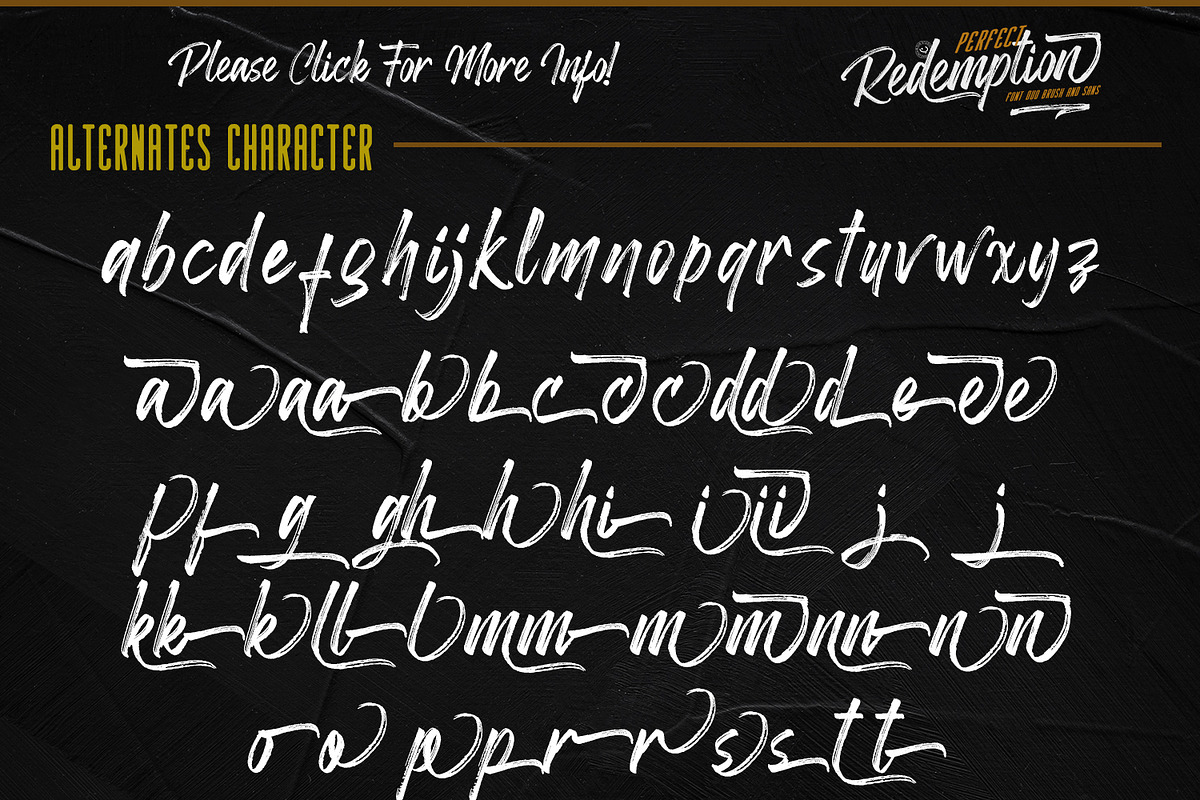 Please Click For More Info!
PERFECT
Redemption
FONT DUO BRUSH AND SANS
ALTERNATES CHARACTER
abcdefghijklmnopqrstuvwxyz
a a a a b b c c c d d d e e e
f f g g h h h i i i i j j
k k k l l l m m m m n n n n
o o p p p r r s s t t